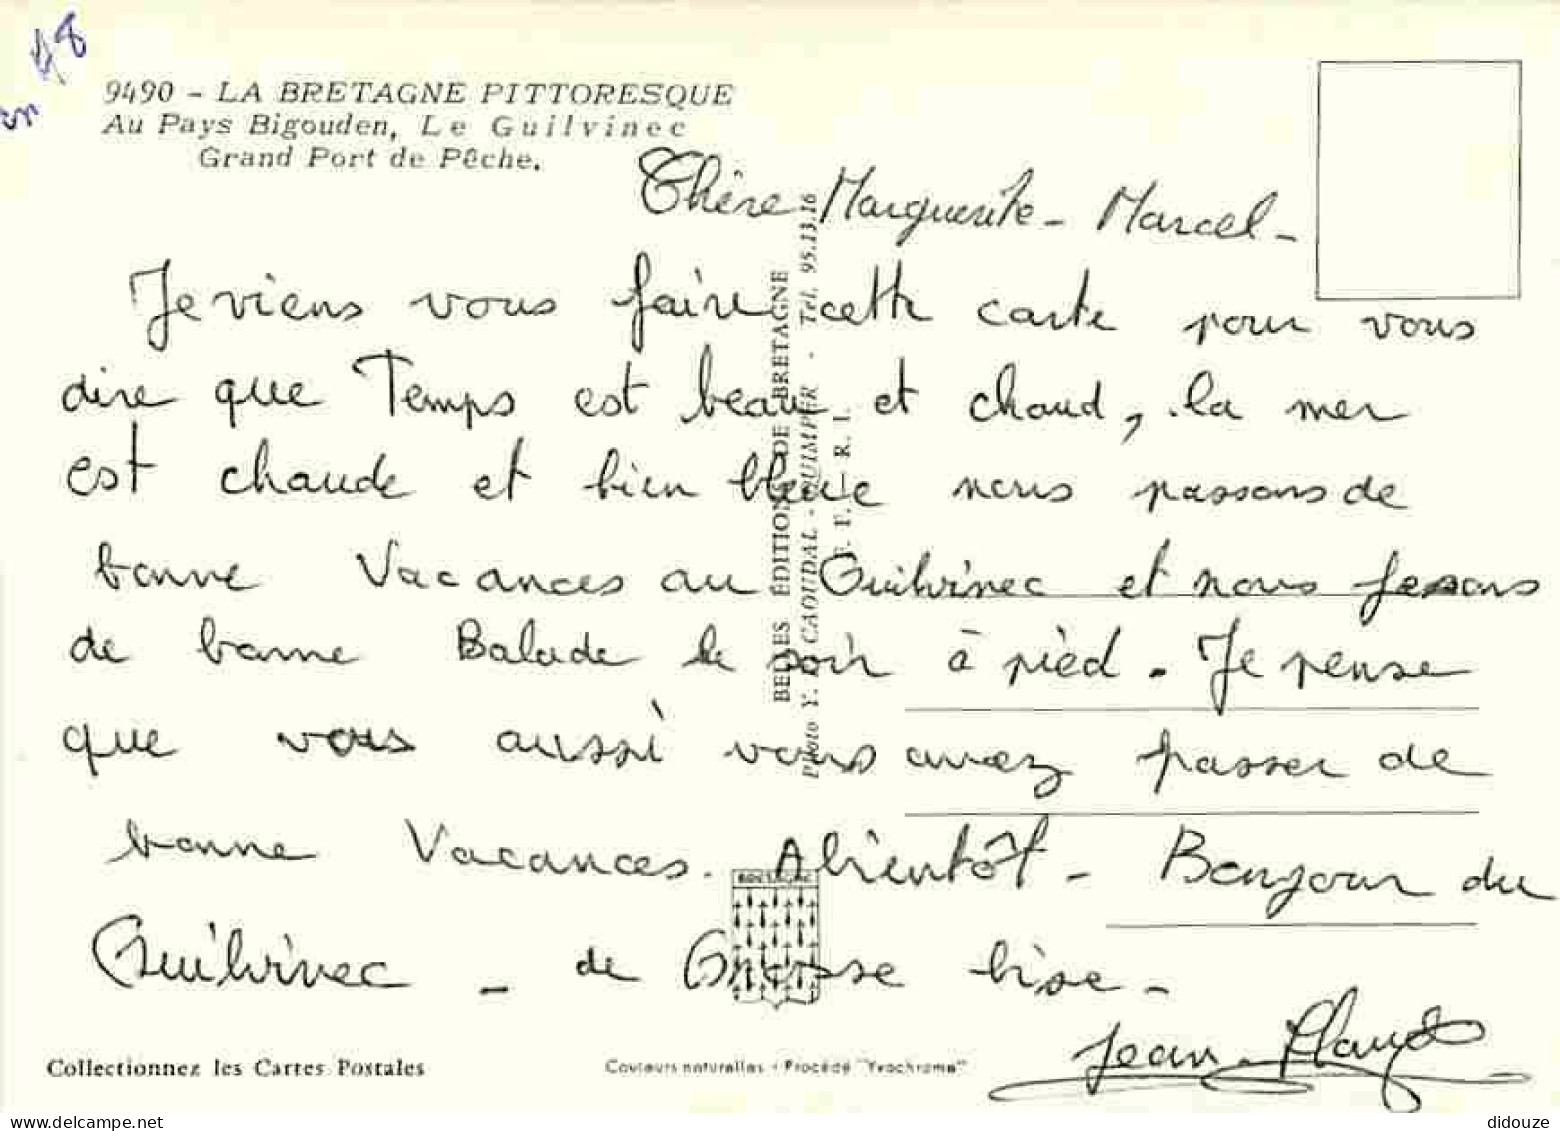 48
9490 - LA BRETAGNE PITTORESQUE
Au Pays Bigouden, Le Guilvinec
Grand Port de Pêche.
Chère Marguerite - Marcel -
Je viens vous faire cette carte pour vous
dire que Temps est beau et chaud, la mer
est chaude et bien bleue nous passons de
bonne Vacances au Guilvinec et nous fessons
de bonne Balade le soir à pied. Je pense
que vous aussi vous avez passer de
bonne Vacances. Abientôt - Bonjour du
Guilvinec - de Grosse bise -
Jean-Claude
BELLES ÉDITIONS DE BRETAGNE
Photo Y. R. CAOUDAL - QUIMPER - Tél. 95.13.16
R. I.
BRETAGNE
Collectionnez les Cartes Postales
Couleurs naturelles - Procédé "Yvochrome"
delcampe.net
didouze